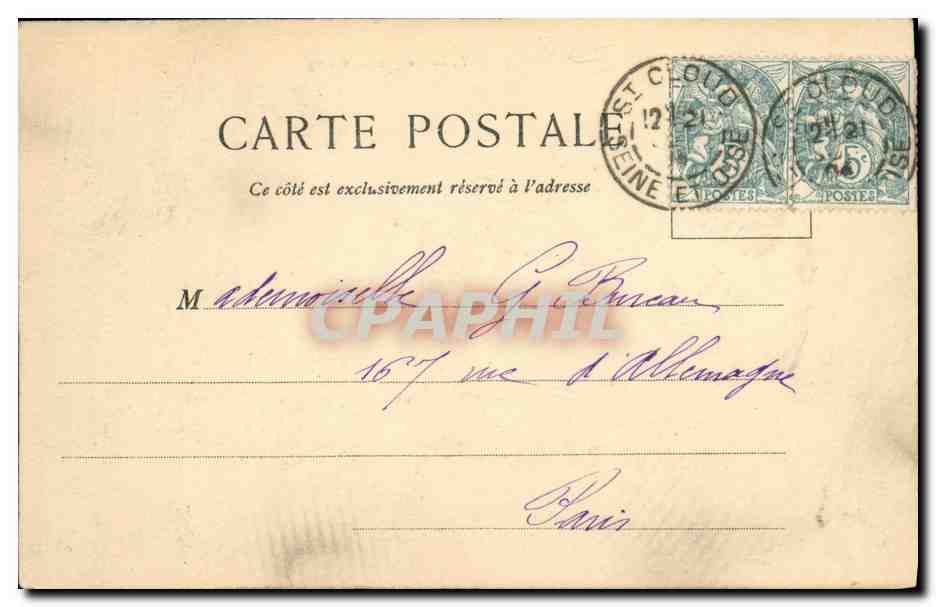 CARTE POSTALE
Ce côté est exclusivement réservé à l'adresse
ST CLOUD
SEINE ET OISE
12 21
5c
POSTES
POSTES
Mademoiselle G. Bureau
CPAPHIL
167 rue d'Allemagne
Paris